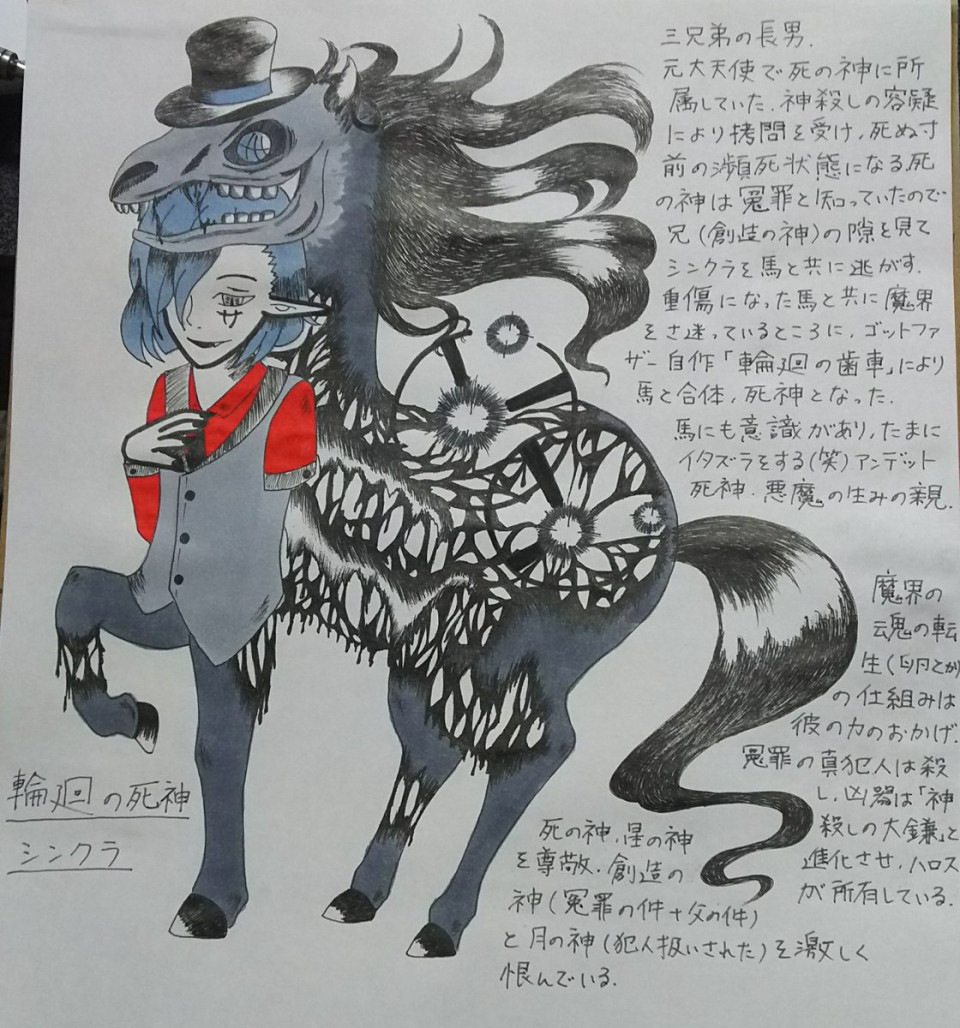 三兄弟の長男.
元大天使で死の神に所
属していた.神殺しの容疑
により拷問を受け,死ぬ寸
前の瀕死状態になる.死
の神は冤罪と知っていたので
兄(創造の神)の隙を見て
シンクラを馬と共に逃がす.
重傷になった馬と共に魔界
をさ迷っているところに,ゴットファ
ザー自作「輪廻の歯車」により
馬と合体,死神となった.
馬にも意識があり,たまに
イタズラをする(笑)アンデット
死神・悪魔の生みの親.
魔界の
魂の転
生(卵とか)
の仕組みは
彼の力のおかげ.
冤罪の真犯人は殺
し,凶器は「神
殺しの大鎌」と
進化させ,ハロス
が所有している.
死の神,星の神
を尊敬.創造の
神(冤罪の件+父の件)
と月の神(犯人扱いされた)を激しく
恨んでいる.
輪廻の死神
シンクラ
サ